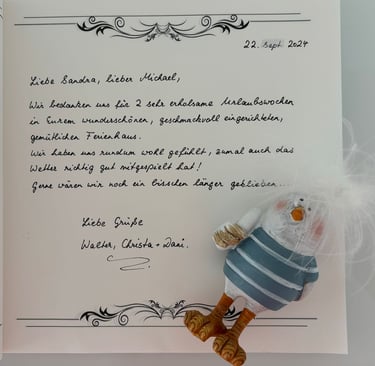 22. Sept. 2024
Liebe Sandra, lieber Michael,
Wir bedanken uns für 2 sehr erholsame Urlaubswochen
in Eurem wunderschönen, geschmackvoll eingerichteten,
gemütlichen Ferienhaus.
Wir haben uns rundum wohl gefühlt, zumal auch das
Wetter richtig gut mitgespielt hat!
Gerne wären wir noch ein bisschen länger geblieben...
Liebe Grüße
Walter, Christa + Dani.